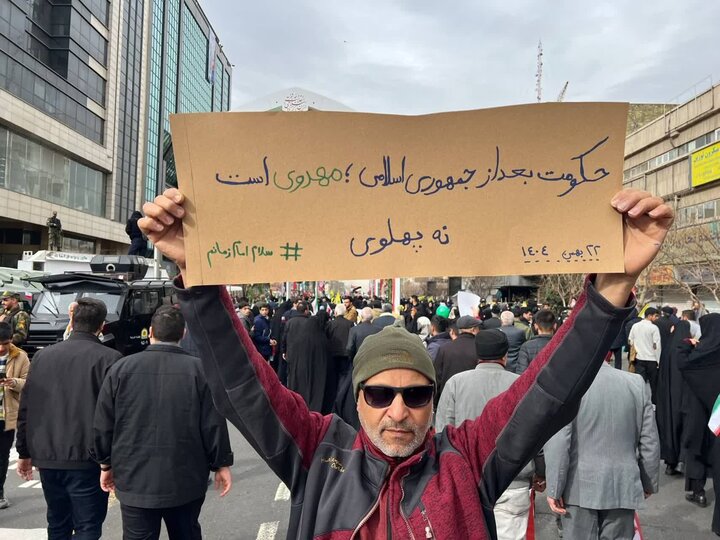 حکومت بعد از جمهوری اسلامی ؛ مهدوی است
نه پهلوی
۲۲ بهمن ۱۴۰۴
#سلام امام زمانم